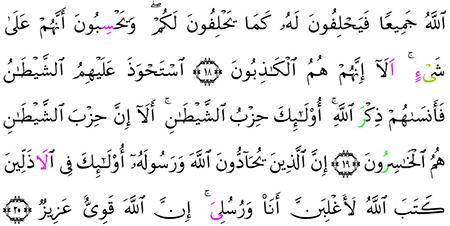 اللَّهُ جَمِيعًا فَيَحْلِفُونَ لَهُۥ كَمَا يَحْلِفُونَ لَكُمْ ۖ وَيَحْسِبُونَ أَنَّهُمْ عَلَىٰ
شَىْءٍ ۚ اَلَآ إِنَّهُمْ هُمُ الْكَاذِبُونَ ﴿١٨﴾ اسْتَحْوَذَ عَلَيْهِمُ الشَّيْطَـٰنُ
فَأَنسَـٰهُمْ ذِكْرَ اللَّهِ ۚ أُوْلَـٰٓئِكَ حِزْبُ الشَّيْطَـٰنِ ۚ أَلَآ إِنَّ حِزْبَ الشَّيْطَـٰنِ
هُمُ الْخَـٰسِرُونَ ﴿١٩﴾ إِنَّ الَّذِينَ يُحَآدُّونَ اللَّهَ وَرَسُولَهُۥٓ أُوْلَـٰٓئِكَ فِى الَاذَلِّينَ
كَتَبَ اللَّهُ لَأَغْلِبَنَّ أَنَا۠ وَرُسُلِىَ ۚ إِنَّ اللَّهَ قَوِىٌّ عَزِيزٌ ﴿٢٠﴾